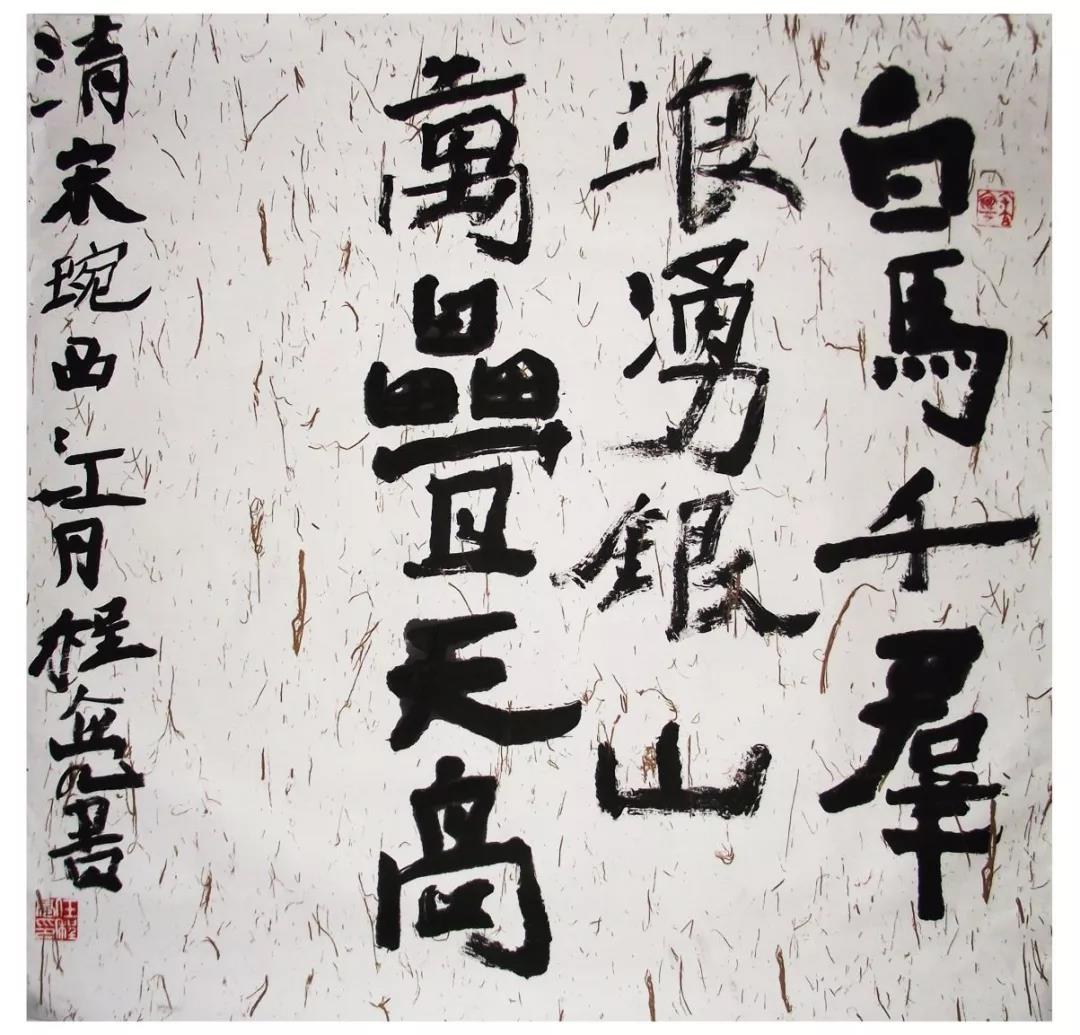 白馬千羣
浪湧銀山
萬疊天高
清宋琬西江月書